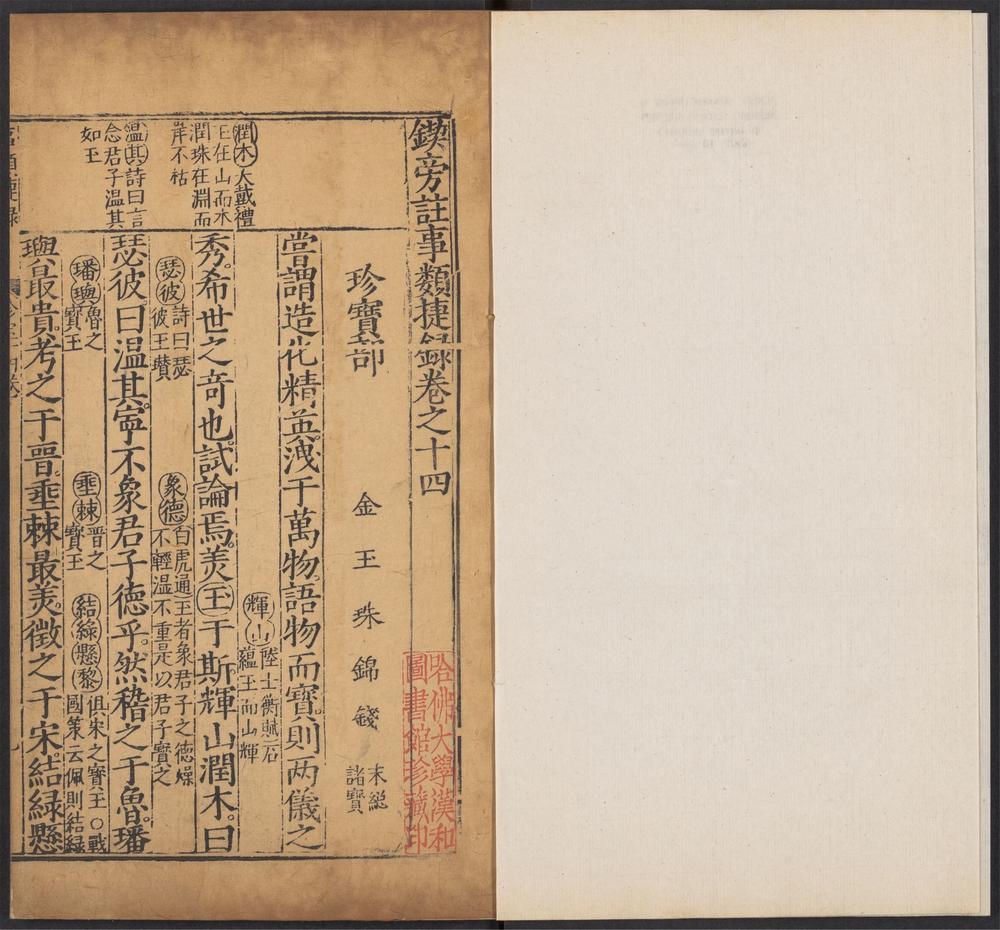 鍥旁註事類捷録卷之十四
珍寶部
金 玉 珠 錦 錢 末總諸寶
嘗謂造化精英洩于萬物語物而寶則两儀之
輝山 陸士衡賦石
蘊玉而山輝
秀希世之竒也試論焉羙玉于斯輝山潤木曰
瑟彼 詩曰瑟
彼玉瓚
象德 白虎通玉者象君子之德燥
不輕溫不重是以君子寶之
瑟彼曰溫其寧不象君子德乎然稽之于魯璠
璠璵 魯之
寶玉
垂棘 晋之
寶玉
結綠懸黎 俱宋之寶玉○戰
國策云佩則結緑
璵最貴考之于晋垂棘最羙徵之于宋結緑懸
潤木 大戴禮
玉在山而木
潤珠在淵而
岸不枯
溫其 詩曰言
念君子溫其
如玉
哈佛大學漢和
圖書館珍藏印